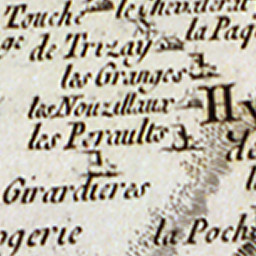 Touche le Chevalera
ge de Trizay la Paq
les Granges
les Nouzillaux
les Peraults
de
Girardieres
ogerie la Poch